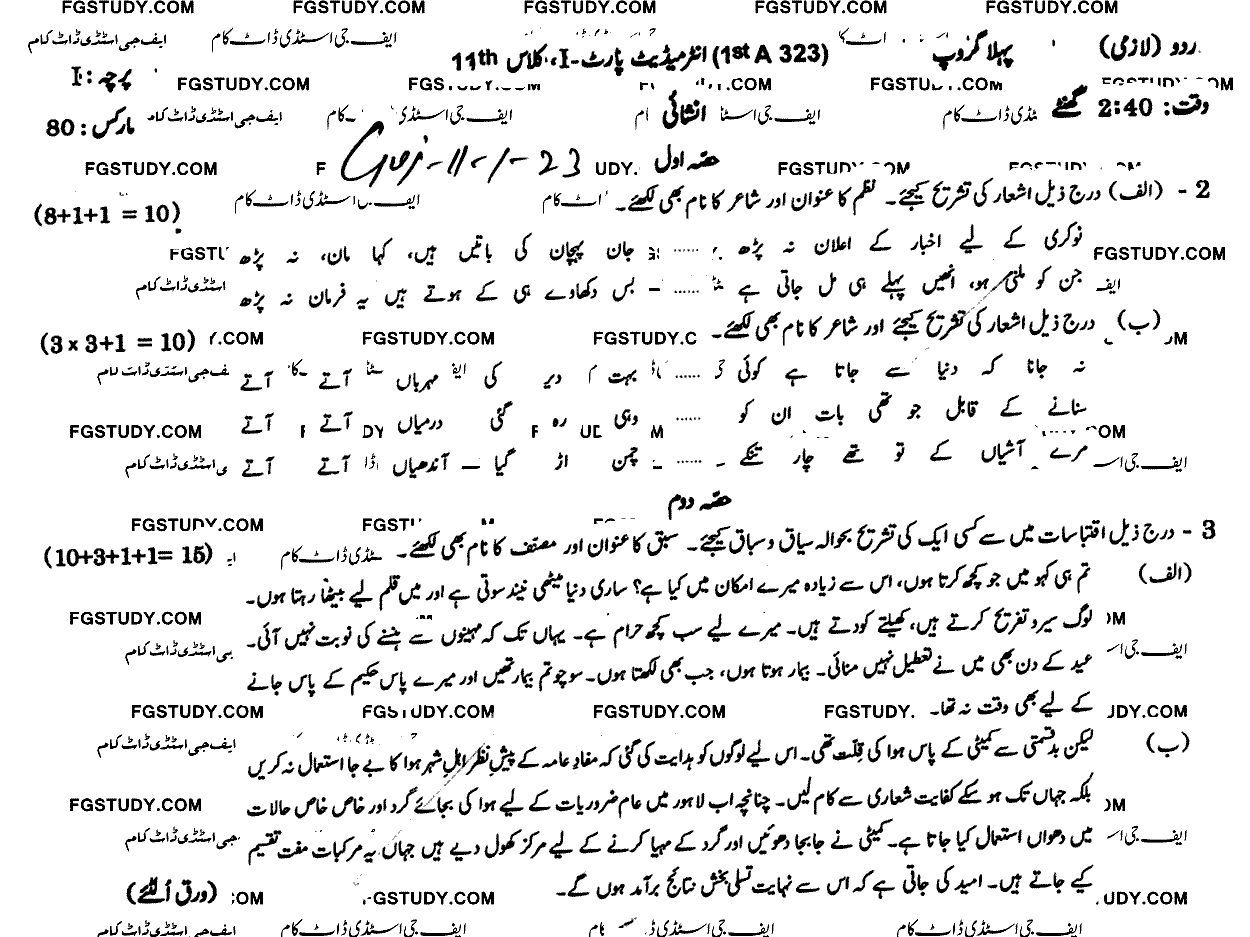 FGSTUDY.COM FGSTUDY.COM FGSTUDY.COM FGSTUDY.COM FGSTUDY.COM
اردو (لازمی) پہلا گروپ (1stA 323) انٹرمیڈیٹ پارٹ-I، کلاس 11th پرچہ: I
وقت: 2:40 گھنٹے انشائی مارکس: 80
حصّہ اول Guj-11-1-23
2 - (الف) درج ذیل اشعار کی تشریح کیجئے۔ نظم کا عنوان اور شاعر کا نام بھی لکھئے۔ (8+1+1 = 10)
نوکری کے لیے اخبار کے اعلان نہ پڑھ ...... جان پہچان کی باتیں ہیں، کہا مان، نہ پڑھ
جن کو ملنی ہو، انھیں پہلے ہی مل جاتی ہے ...... بس دکھاوے ہی کے ہوتے ہیں یہ فرمان نہ پڑھ
(ب) درج ذیل اشعار کی تشریح کیجئے اور شاعر کا نام بھی لکھئے۔ (3 x 3+1 = 10)
نہ جانا کہ دنیا سے جاتا ہے کوئی ...... بہت دیر کی مہرباں آتے آتے
سنانے کے قابل جو تھی بات ان کو ...... وہی رہ گئی درمیاں آتے آتے
مرے آشیاں کے تو تھے چار تنکے ...... چمن اڑ گیا آندھیاں آتے آتے
حصّہ دوم
3 - درج ذیل اقتباسات میں سے کسی ایک کی تشریح بحوالہ سیاق و سباق کیجئے۔ سبق کا عنوان اور مصنف کا نام بھی لکھئے۔ (10+3+1+1= 15)
(الف) تم ہی کہو میں جو کچھ کرتا ہوں، اس سے زیادہ میرے امکان میں کیا ہے؟ ساری دنیا میٹھی نیند سوتی ہے اور میں قلم لیے بیٹھا رہتا ہوں۔
لوگ سیر و تفریح کرتے ہیں، کھیلتے کودتے ہیں۔ میرے لیے سب کچھ حرام ہے۔ یہاں تک کہ مہینوں سے ہنسنے کی نوبت نہیں آئی۔
عید کے دن بھی میں نے تعطیل نہیں منائی۔ بیمار ہوتا ہوں، جب بھی لکھتا ہوں۔ سوچو تم بیمار تھیں اور میرے پاس حکیم کے پاس جانے
کے لیے بھی وقت نہ تھا۔
(ب) لیکن بدقسمتی سے کمیٹی کے پاس ہوا کی قلّت تھی۔ اس لیے لوگوں کو ہدایت کی گئی کہ مفاد عامہ کے پیش نظر اہل شہر ہوا کا بے جا استعمال نہ کریں
بلکہ جہاں تک ہو سکے کفایت شعاری سے کام لیں۔ چنانچہ اب لاہور میں عام ضروریات کے لیے ہوا کی بجائے گرد اور خاص خاص حالات
میں دھواں استعمال کیا جاتا ہے۔ کمیٹی نے جابجا دھوئیں اور گرد کے مہیا کرنے کے لیے مرکز کھول دیے ہیں جہاں یہ مرکبات مفت تقسیم
کیے جاتے ہیں۔ امید کی جاتی ہے کہ اس سے نہایت تسلی بخش نتائج برآمد ہوں گے۔
(ورق اُلٹئے)